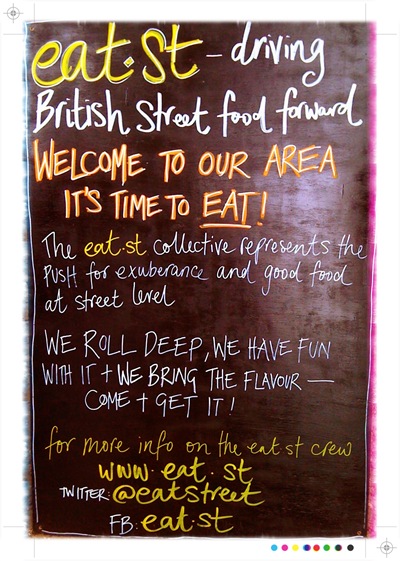 eat.st - driving
British Street food forward
WELCOME TO OUR AREA
IT'S TIME TO EAT!
The eat.st collective represents the
PUSH for exuberance and good food
at street level
WE ROLL DEEP, WE HAVE FUN
WITH IT + WE BRING THE FLAVOUR —
COME + GET IT!
for more info on the eat st crew
www.eat.st
TWITTER: @eatstreet
FB: eat.st